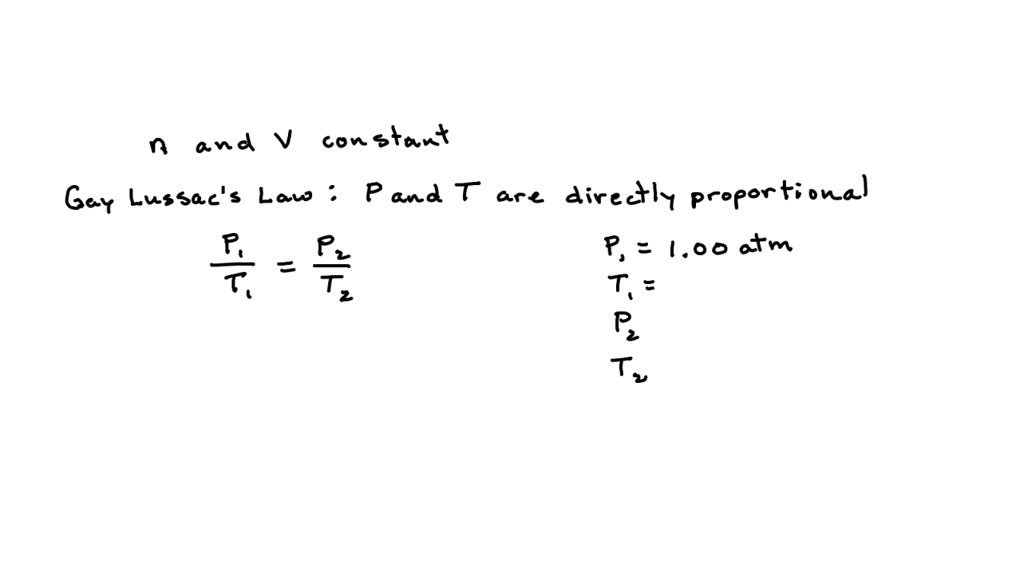 n and V constant
Gay Lussac's Law : P and T are directly proportional
P₁/T₁ = P₂/T₂
P₁ = 1.00 atm
T₁ =
P₂
T₂